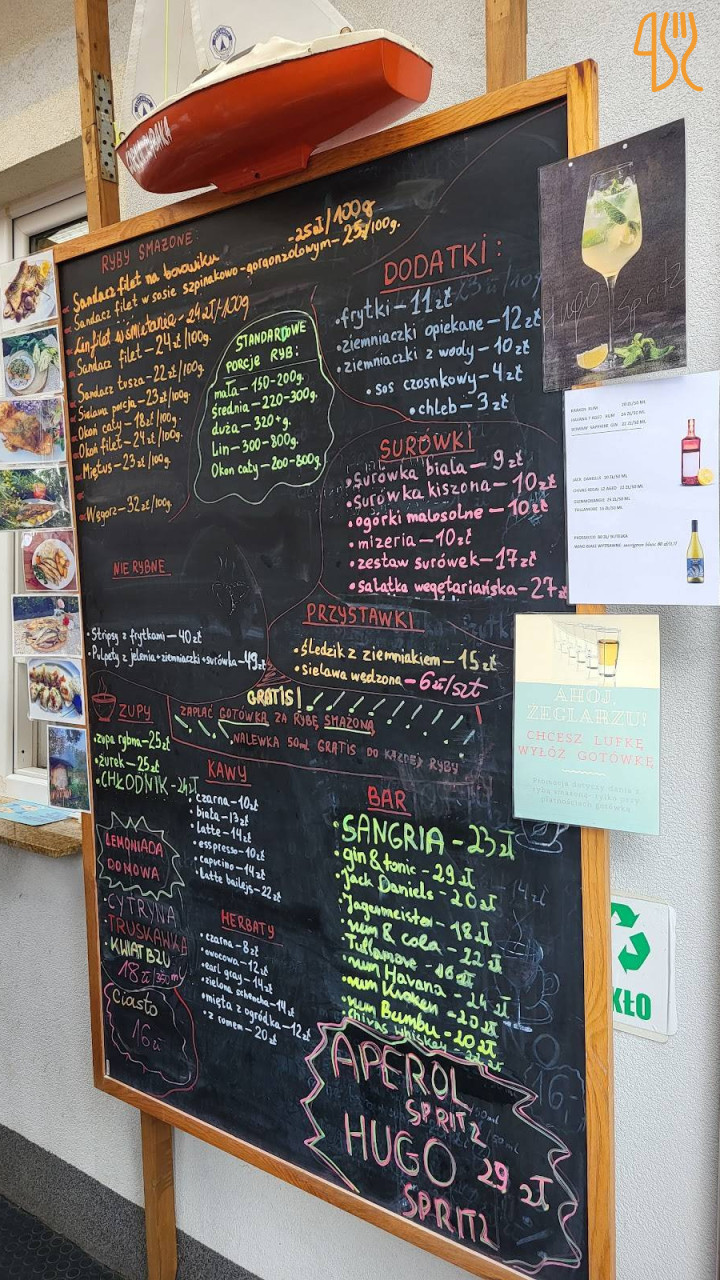 RYBY SMAŻONE
Sandacz filet na borowiku -25zł/100g
Sandacz filet w sosie szpinakowo-gorgonzolowym-25/100g.
Lin filet w śmietanie-24zł/100g
Sandacz filet-24zł/100g.
Sandacz tusza-22zł/100g.
Sielawa porcja-23zł/100g.
Okoń cały-18zł/100g.
Okoń filet-24zł/100g.
Miętus-23zł/100g.
Węgorz-32zł/100g.
STANDARDOWE
PORCJE RYB:
mała-150-200g.
średnia-220-300g.
duża-320+g.
Lin-300-800g.
Okoń cały-200-800g.
DODATKI:
•frytki-11zł
•ziemniaczki opiekane-12zł
•ziemniaczki z wody-10zł
•sos czosnkowy-4zł
•chleb-3zł
SURÓWKI
•surówka biała-9zł
•surówka kiszona-10zł
•ogórki małosolne-10zł
•mizeria-10zł
•zestaw surówek-17zł
•sałatka wegetariańska-27zł
NIE RYBNE
•Stripsy z frytkami-40zł
•Pulpety z jelenia+ziemniaczki+surówka-49zł
PRZYSTAWKI
•śledzik z ziemniakiem-15zł
•sielawa wędzona-6zł/szt
GRATIS!
ZAPŁAĆ GOTÓWKĄ ZA RYBĘ SMAŻONĄ
NALEWKA 50ml GRATIS DO KAŻDEJ RYBY
ZUPY
•zupa rybna-25zł
•żurek-25zł
•CHŁODNIK-24zł
KAWY
•czarna-10zł
•biała-13zł
•latte-14zł
•esspresso-10zł
•capucino-14zł
•latte bailejs-22zł
BAR
•SANGRIA-23zł
•gin & tonic-29zł
•Jack Daniels-20zł
•Jagermeister-18zł
•rum & cola-22zł
•Tullamore-16zł
•rum Havana-24zł
•rum Kraken-20zł
•rum Bumbu-20zł
•chivas whiskey-22zł
LEMONIADA
DOMOWA
•CYTRYNA
•TRUSKAWKA
•KWIAT BZU
18zł/350ml
ciasto
16zł
HERBATY
•czarna-8zł
•owocowa-12zł
•earl gray-14zł
•zielona senchcha-14zł
•mięta z ogródka-12zł
•z romem-20zł
APEROL
SPRITZ
HUGO 29zł
SPRITZ
Hugo Spritz
AHOJ,
ŻEGLARZU!
CHCESZ LUFKĘ
WYŁÓŻ GOTÓWKĘ
KŁO